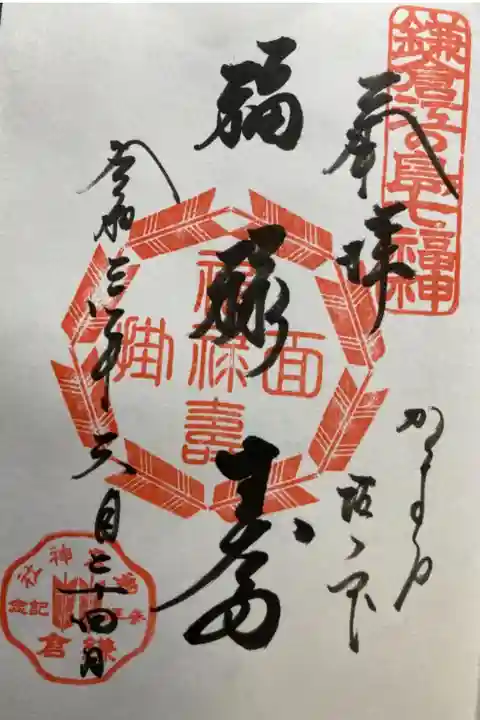 鎌倉江の島七福神
奉拝
かまくら
坂ノ下
福禄寿
福禄寿
面掛
令和三年六月二十四日
御霊神社
参拝記念
鎌倉